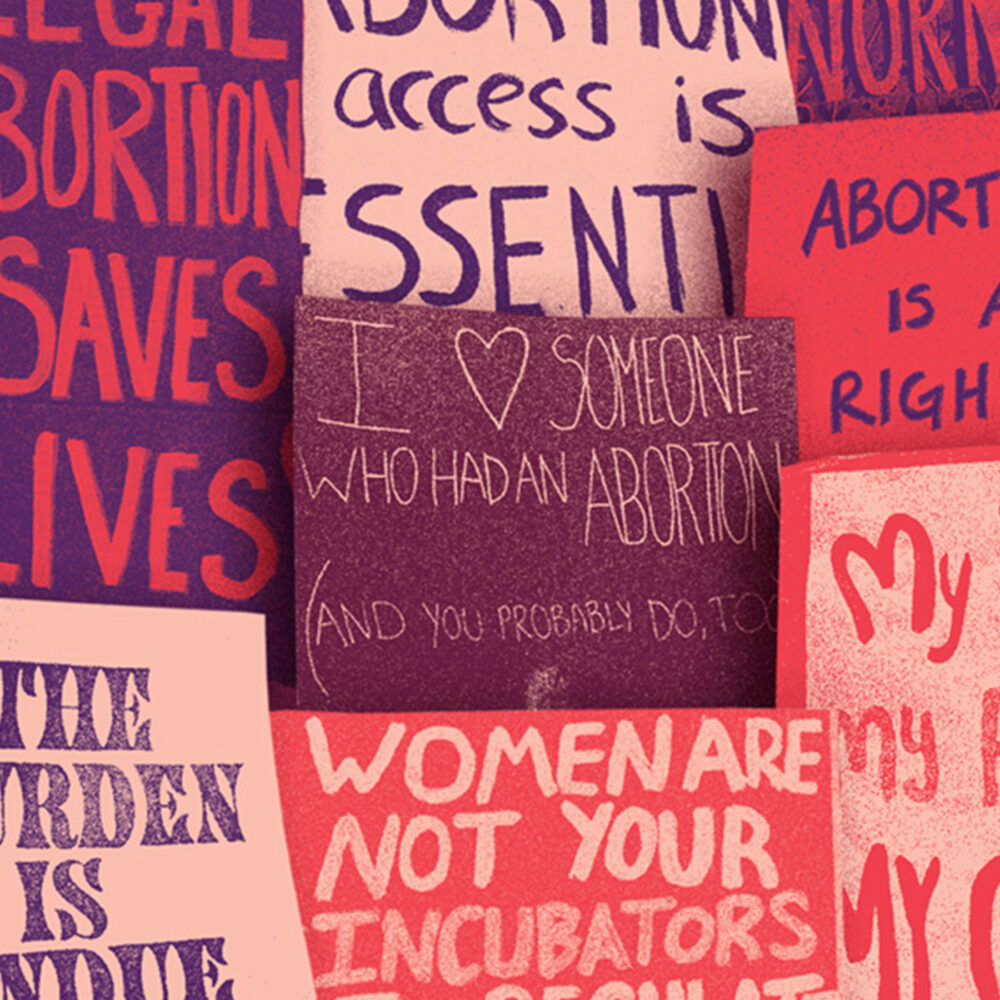 LEGAL
ABORTION
SAVES
LIVES
ABORTION
access is
ESSENTI
NORM
ABORT
IS A
RIGH
I ♡ SOMEONE
WHO HAD AN ABORTION
(AND YOU PROBABLY DO, TOO
My
my
MY
THE
URDEN
IS
NDUE
WOMEN ARE
NOT YOUR
INCUBATORS